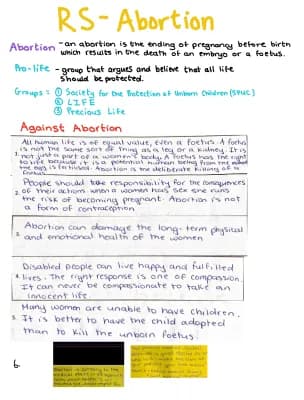 RS- Abortion
Abortion - an abortion is the ending of pregnancy before birth
which results in the death of an embryo or a foetus.
Pro-life - group that argues and believe that all life
should be protected.
Groups: ① Society for the Protection of Unborn Children (SPUC)
② LIFE
③ Precious Life
Against Abortion
All human life is of equal value, even a foetus. A foetus
is not the same sort of thing as a leg or a kidney. It is
1. not just a part of a women's body. A foetus has the right
to life because it is a potential human being from the
the egg is fertilised. Abortion is the deliberate killing of a
foetus.
People should take responsibility for the consequences
2. of their actions when a women has sex she runs
the risk of becoming pregnant. Abortion is not
a form of contraception
3. Abortion can damage the long-term physical
and emotional health of the women
Disabled people can live happy and fulfilled
4. lives. The right response is one of compassion.
It can never be compassionate to take an
innocent life.
Many women are unable to have children.
5. It is better to have the child adopted
than to kill the unborn foetus.
6.